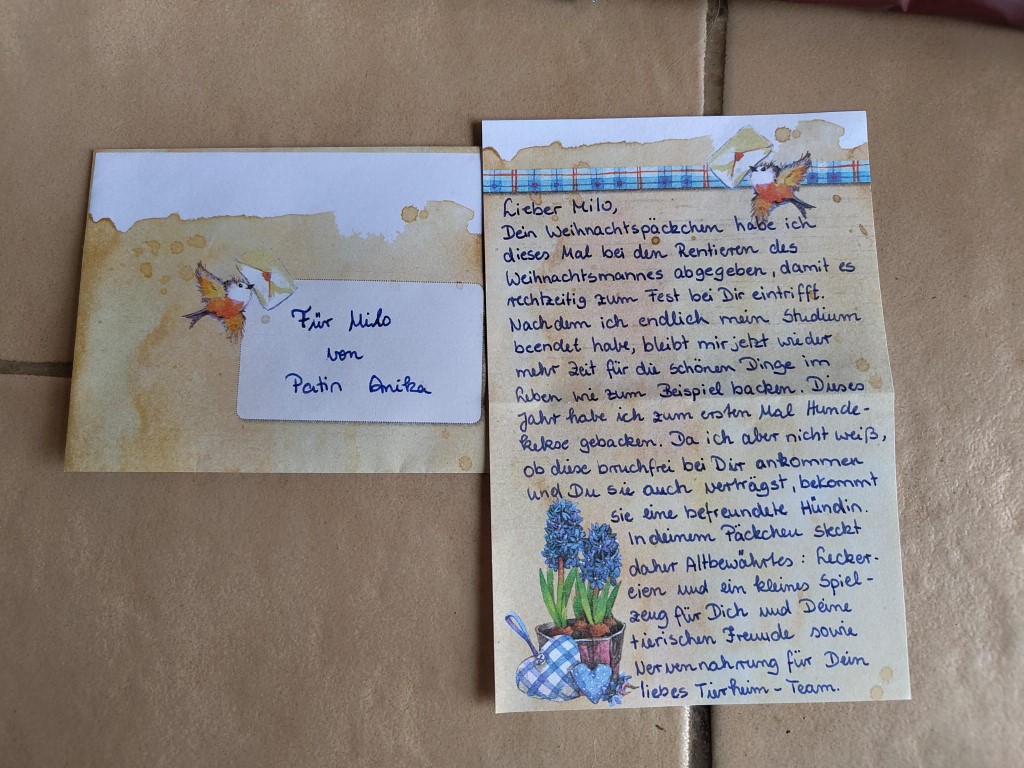 Für Milo
von
Patin Anika
Lieber Milo,
Dein Weihnachtspäckchen habe ich
dieses Mal bei den Rentieren des
Weihnachtsmannes abgegeben, damit es
rechtzeitig zum Fest bei Dir eintrifft.
Nachdem ich endlich mein Studium
beendet habe, bleibt mir jetzt wieder
mehr Zeit für die schönen Dinge im
Leben wie zum Beispiel backen. Dieses
Jahr habe ich zum ersten Mal Hunde-
kekse gebacken. Da ich aber nicht weiß,
ob diese bruchfrei bei Dir ankommen
und Du sie auch verträgst, bekommt
sie eine befreundete Hündin.
In deinem Päckchen steckt
daher Altbewährtes: Lecker-
eien und ein kleines Spiel-
zeug für Dich und Deine
tierischen Freunde sowie
Nervennahrung für Dein
liebes Tierheim-Team.